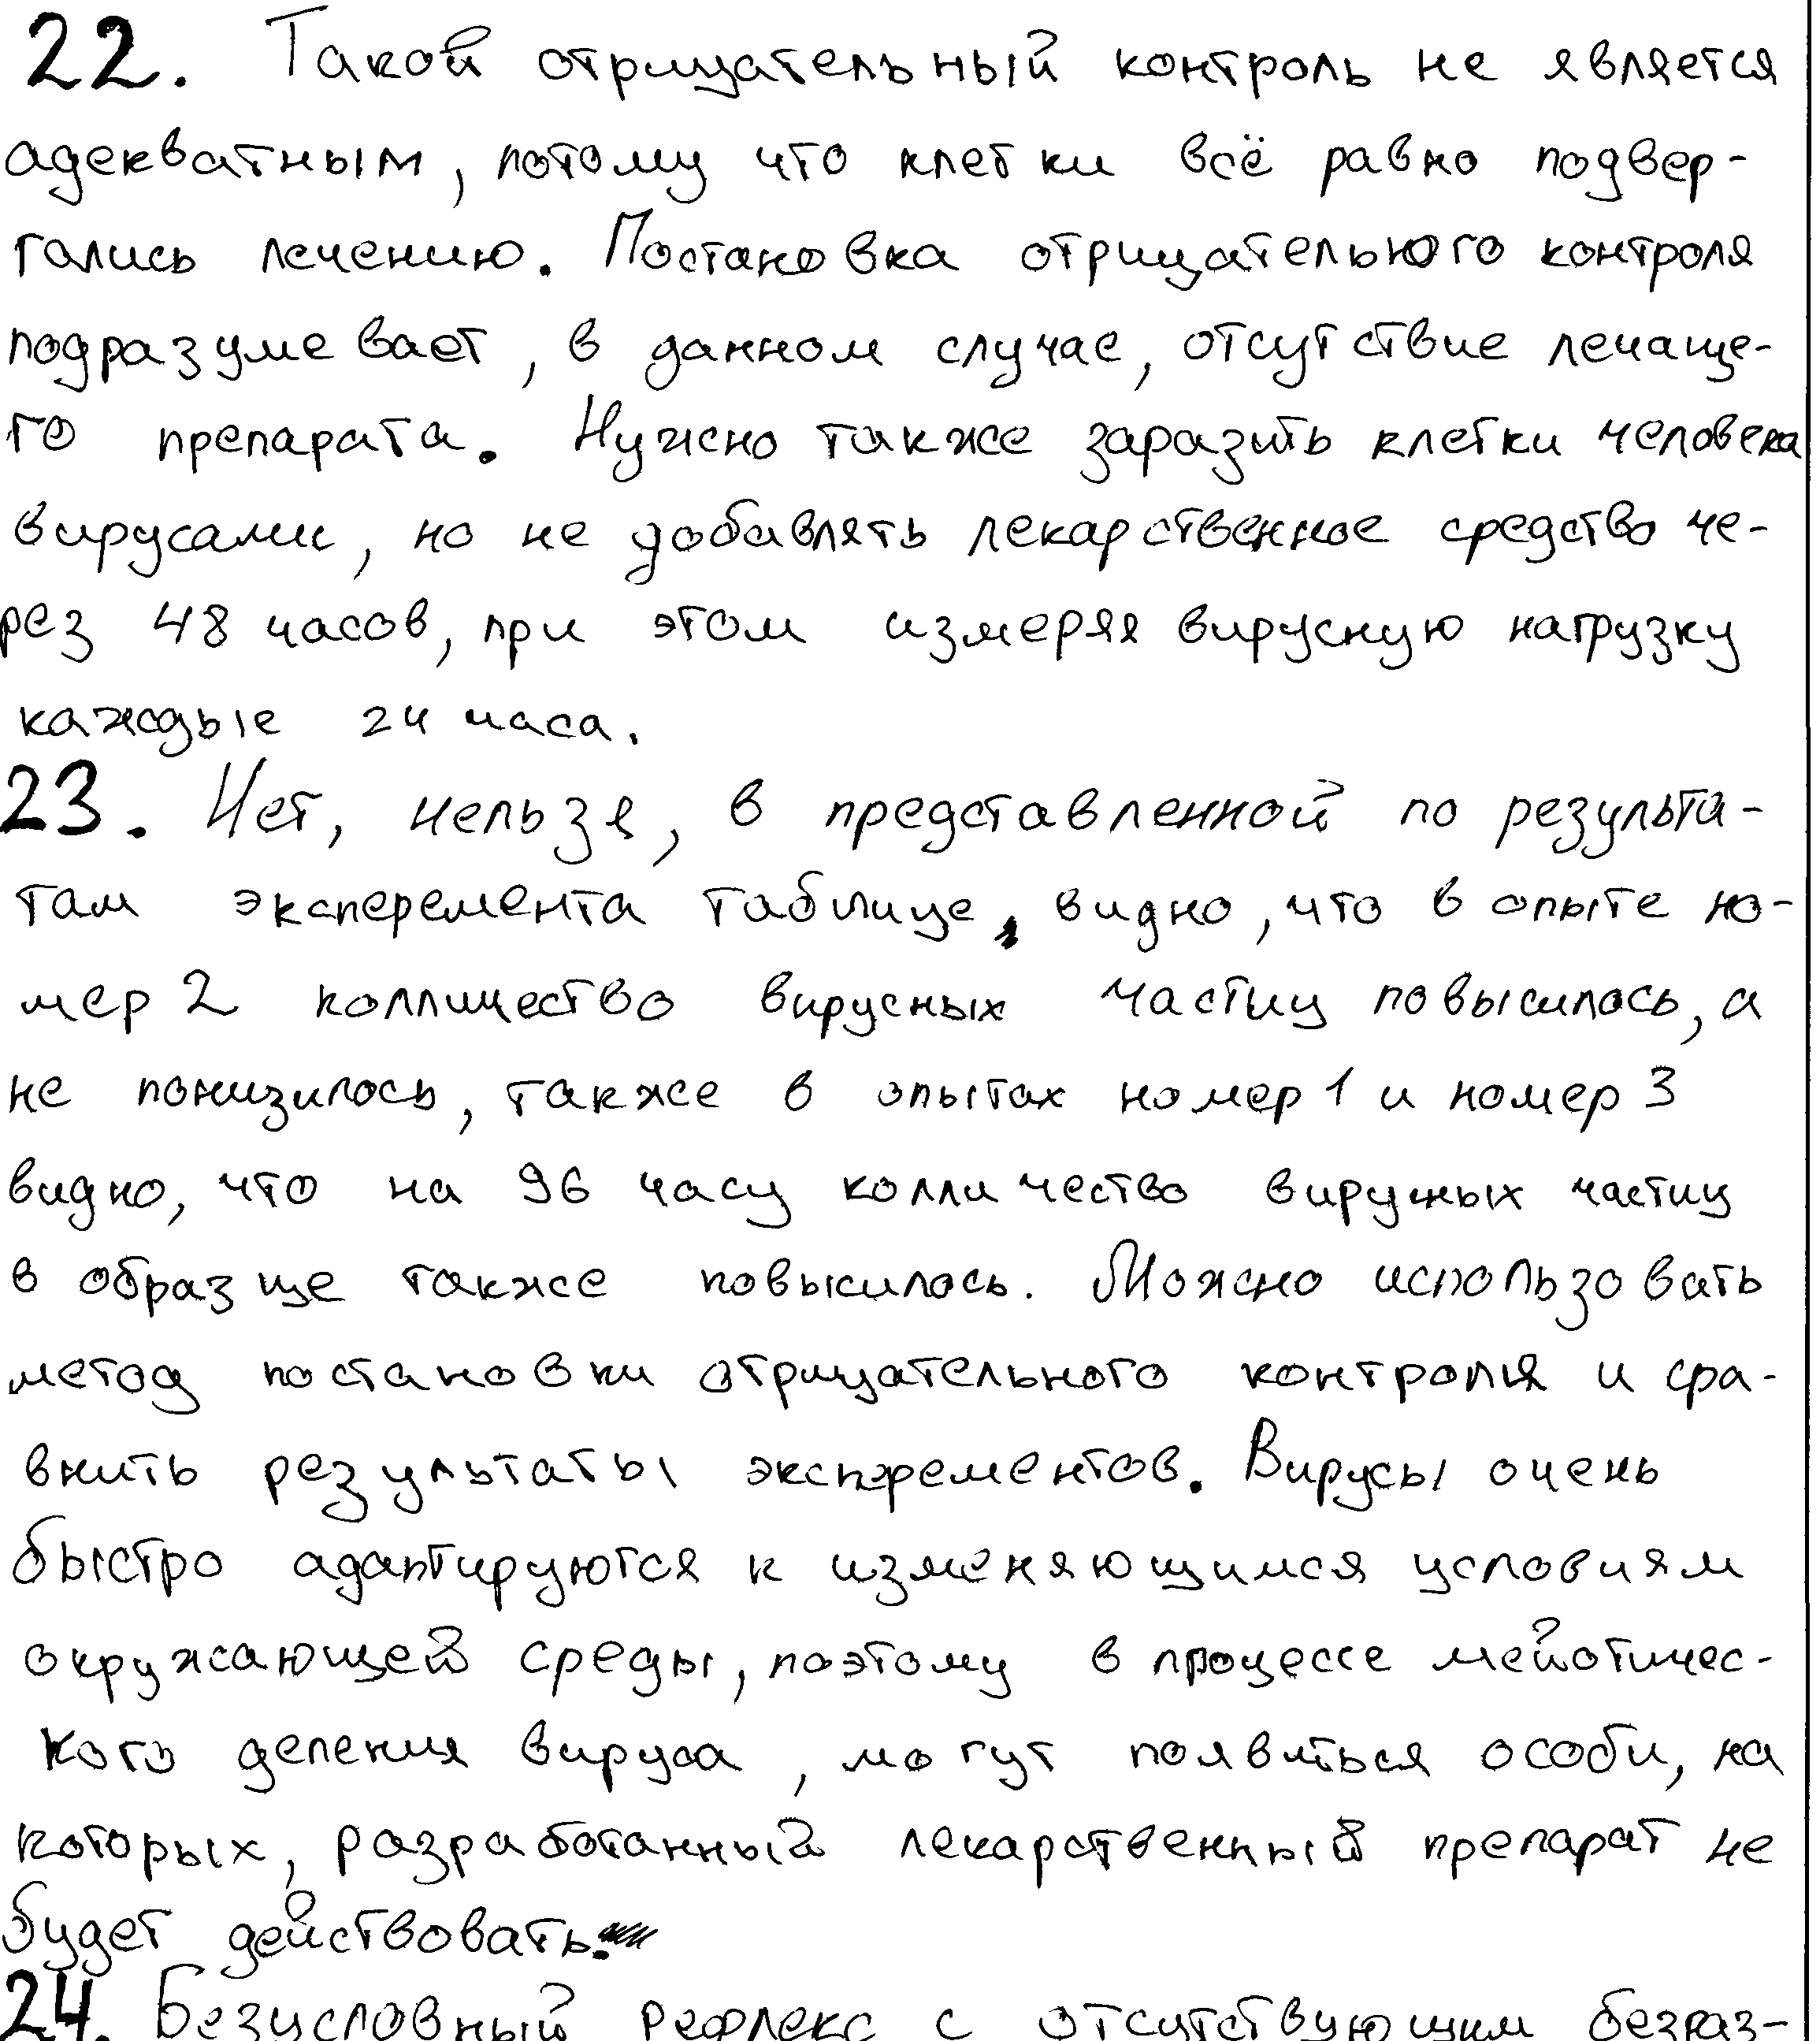 22. Такой отрицательный контроль не является
адекватным, потому что клетки всё равно подвер-
гались лечению. Постановка отрицательного контроля
подразумевает, в данном случае, отсутствие лечаще-
го препарата. Нужно также заразить клетки человека
вирусами, но не добавлять лекарственное средство че-
рез 48 часов, при этом измеряя вирусную нагрузку
каждые 24 часа.
23. Нет, нельзя, в представленной по результа-
там эксперемента таблице, видно, что в опыте но-
мер 2 колличество вирусных частиц повысилось, а
не понизилось, также в опытах номер 1 и номер 3
видно, что на 96 часу колличество вирусных частиц
в образце также повысилось. Можно использовать
метод постановки отрицательного контроля и сра-
внить результаты эксперементов. Вирусы очень
быстро адаптируются к изменяющимся условиям
окружающей среды, поэтому в процессе мейотичес-
кого деления вируса, могут появиться особи, на
которых, разработанный лекарственный препарат не
будет действовать.
24. Безусловный рефлекс с отсутствующим безраз-